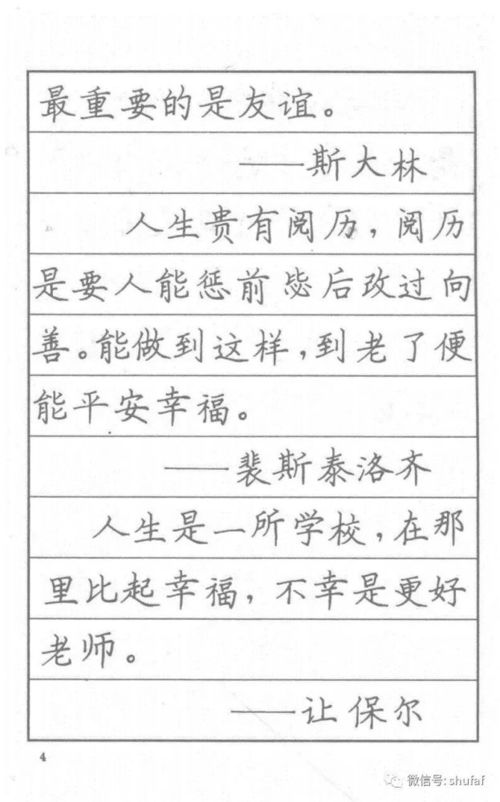 最重要的是友谊。
——斯大林
人生贵有阅历，阅历
是要人能惩前毖后改过向
善。能做到这样，到老了便
能平安幸福。
——裴斯泰洛齐
人生是一所学校，在那
里比起幸福，不幸是更好
老师。
——让保尔
4
微信号: shufaf